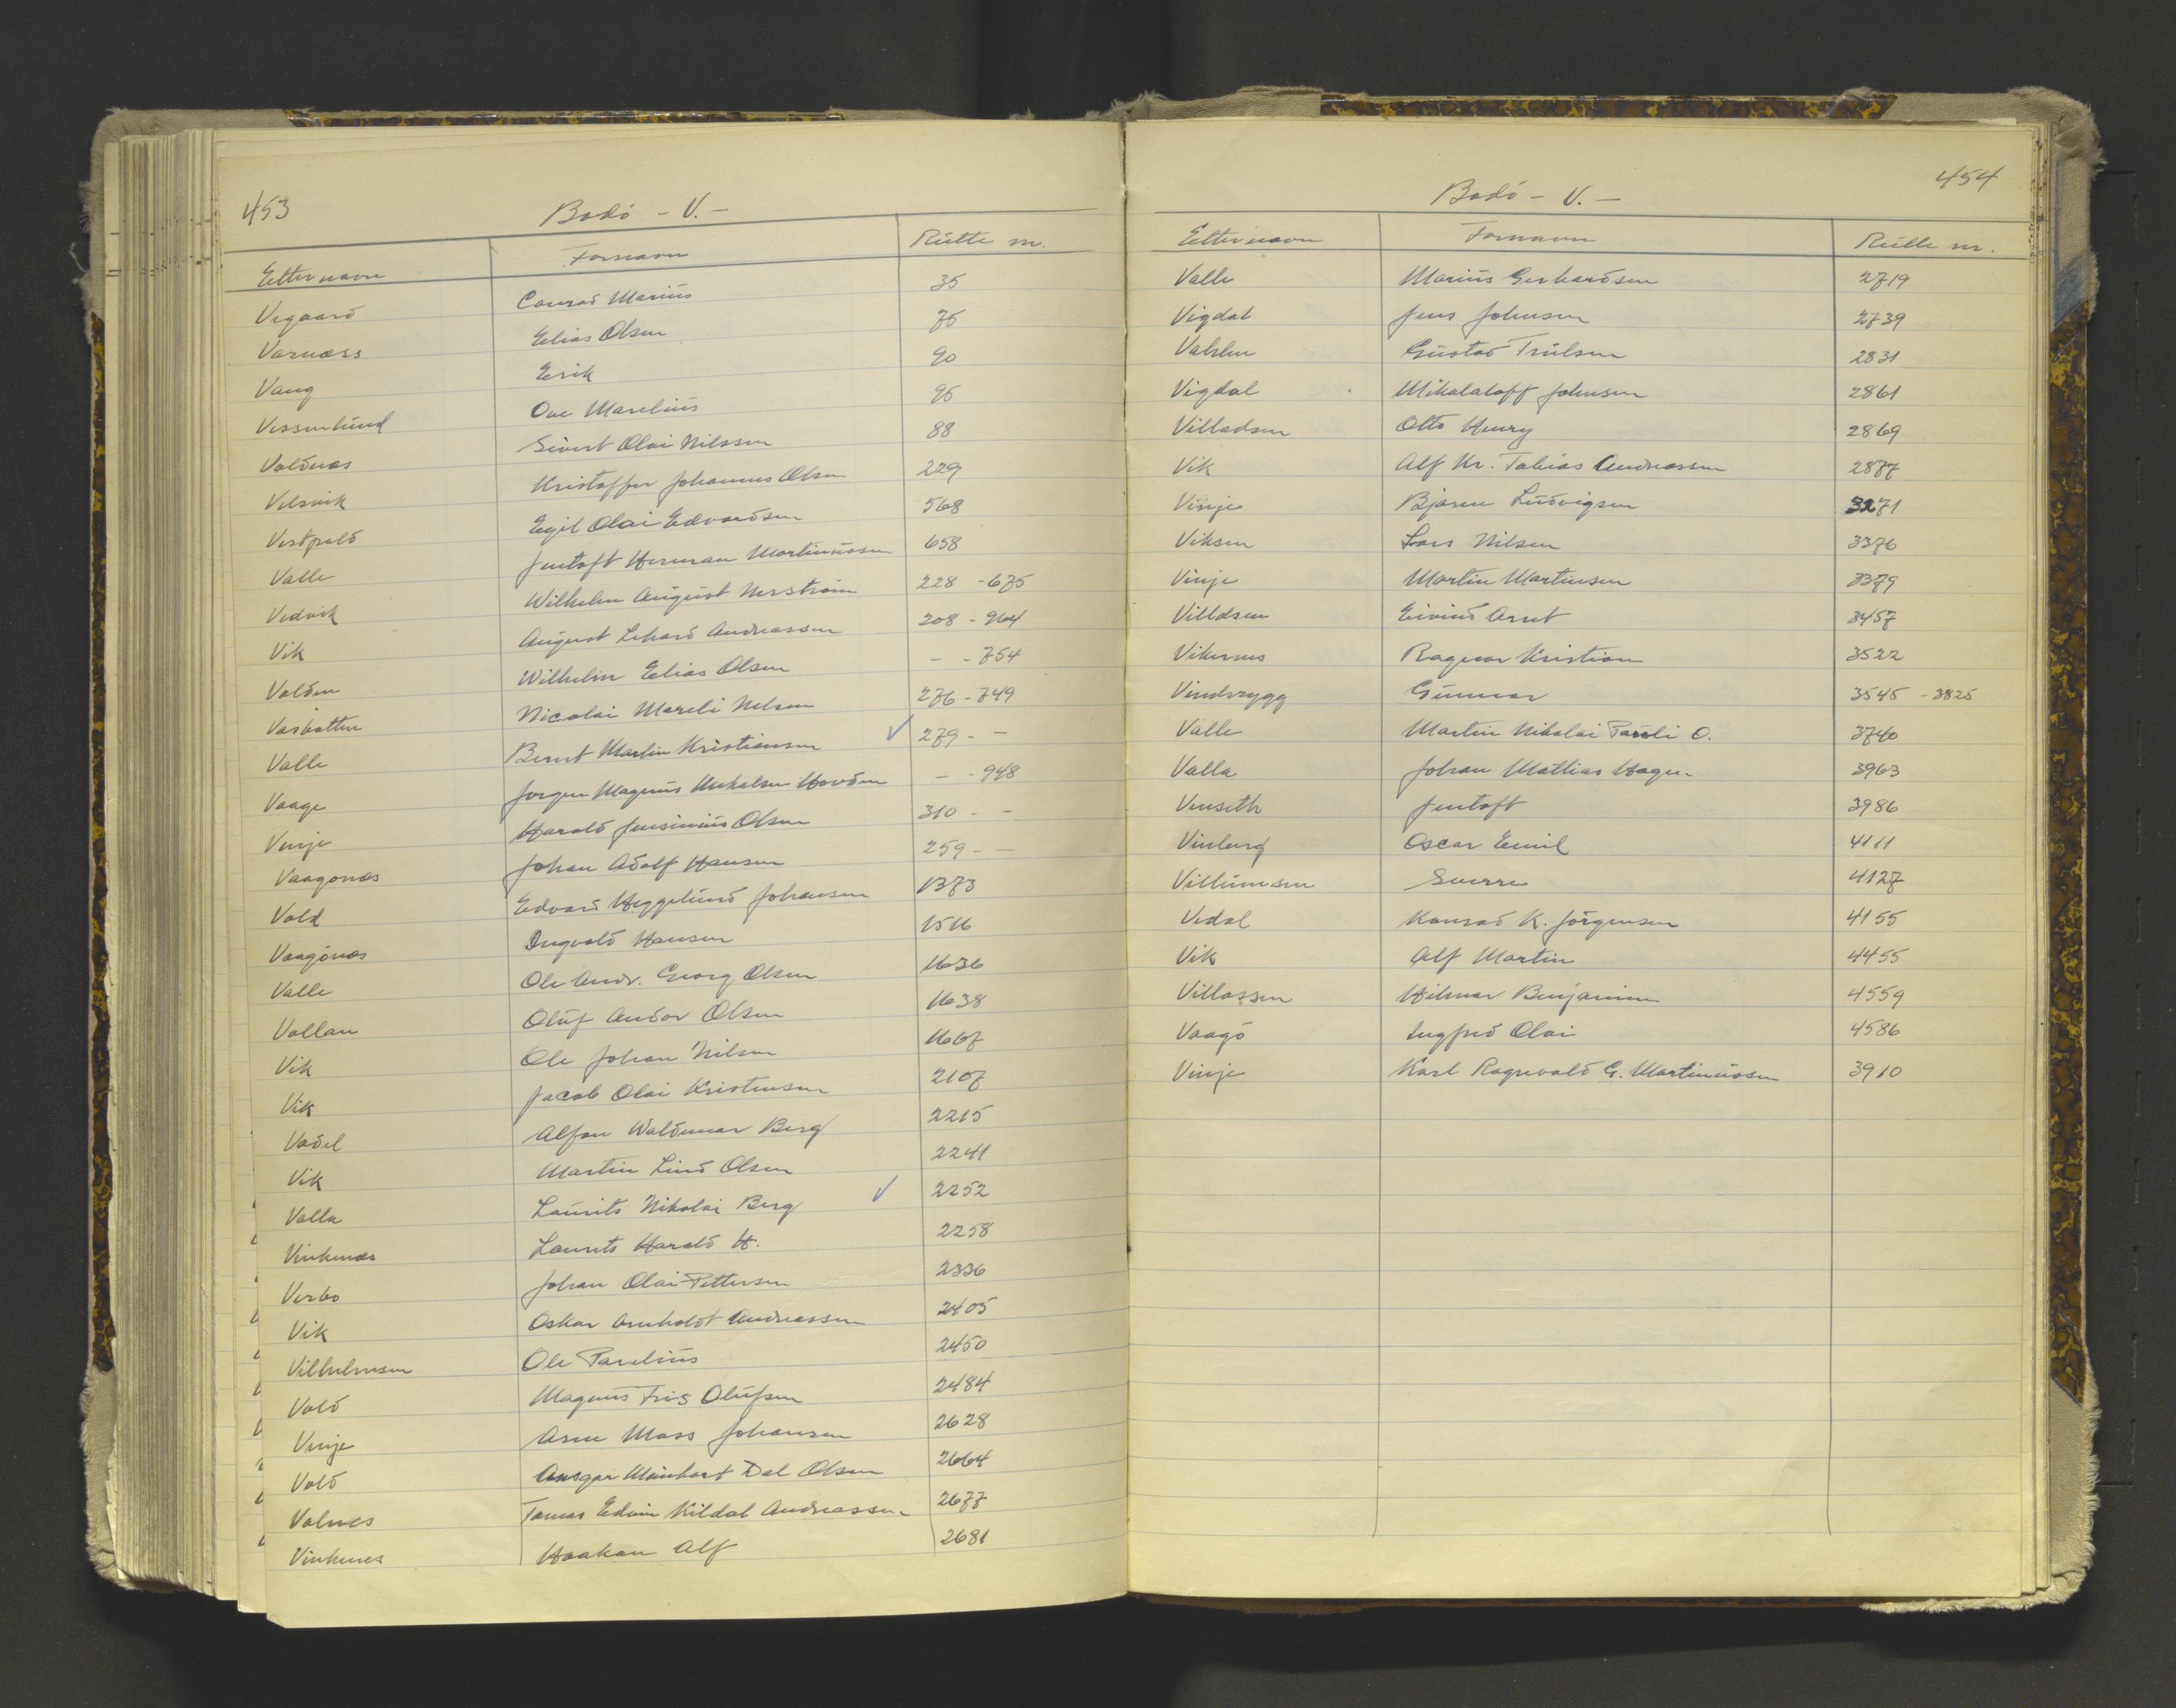 453
Bodö - V. -
Etternavn Fornavn Rulle nr.
Vegaard Conrad Marius 35
Varnæss Elias Olsen 75
Vang Erik 90
Vessenlund Ove Marelius 95
Valdnes Sivert Olai Nilssen 88
Velsvik Kristoffer Johannes Olsen 229
Vestpold Egil Olai Edvardsen 568
Valle Jentoft Herman Martinussen 658
Vedvik Wilhelm August Nerström 228 - 675
Vik August Lehard Andreassen 208 - 964
Valden Wilhelm Elias Olsen - - 754
Vasbotten Nicolai Mareli Nelsen 276 - 749
Valle Bernt Martin Kristiansen ✓ 279 - -
Vaage Jørgen Magnus Mikalsen Hovden - - 948
Vinje Harald Jensinius Olsen 310 - -
Vaagønes Johan Adolf Hansen 259 - -
Vold Edvard Heggelund Johansen 1373
Vaagönes Ingvald Hansen 1516
Valle Ole Andr. Georg Olsen 1636
Vollan Oluf Andor Olsen 1638
Vik Ole Johan Nilsen 1667
Vik Jacob Olai Kristensen 2107
Vadel Alfon Waldemar Berg 2215
Vik Martin Lind Olsen 2241
Valla Laurits Nikolai Berg ✓ 2252
Vinkenes Laurits Harald H. 2258
Verbo Johan Olai Pettersen 2336
Vik Oskar Arnholdt Andreassen 2405
Vilhelmsen Ole Parelius 2450
Vold Magnus Friis Olufsen 2484
Vinje Arne Moss Johansen 2628
Vold Ansgar Meinhart Dal Olsen 2664
Valnes Tomas Edvin Kildal Andreassen 2677
Vinkenes Haakon Alf 2681
454
Bodö - V. -
Etternavn Fornavn Rulle nr.
Valle Marius Gerhardsen 2719
Vigdal Jens Johnsen 2739
Valslen Gustav Trulsen 2831
Vigdal Mikalaloff Johnsen 2861
Villadsen Otto Henry 2869
Vik Alf Kr. Tobias Andreassen 2877
Vinje Bjarne Ludvigsen 3271
Viksen Lars Nilsen 3376
Vinje Martin Martinsen 3379
Villdsen Eivind Arnt 3457
Vikernes Ragnar Kristian 3522
Vindrygg Gunnar 3545 - 3825
Valle Martin Nikolai Pauli O. 3740
Valla Johan Mathias Hagen 3963
Venseth Jentoft 3986
Vinberg Oscar Emil 4111
Villumsen Sverre 4127
Vedal Konrad K. Jörgensen 4155
Vik Alf Martin 4455
Villassen Hilmar Benjamin 4559
Vaagö Ingfred Olai 4586
Vinje Karl Ragnvald G. Martinussen 3910